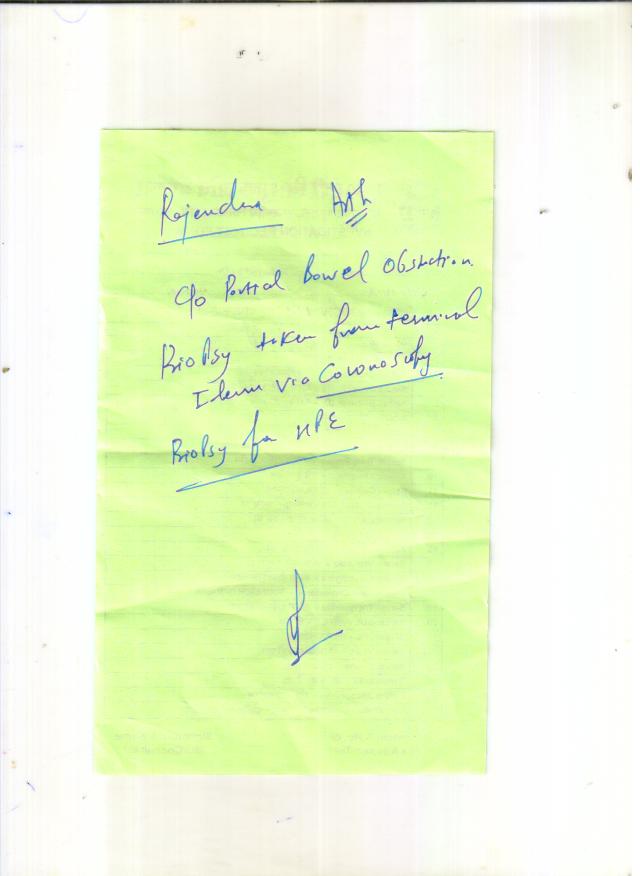 Rajendra
c/o Partial Bowel Obstruction.
Biopsy taken from terminal
Ileum via Colonoscopy.
Biopsy for HPE